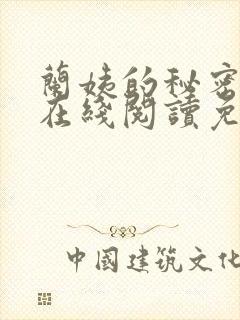 蘭姨的秘密
在綫閱讀免
中國建筑文化